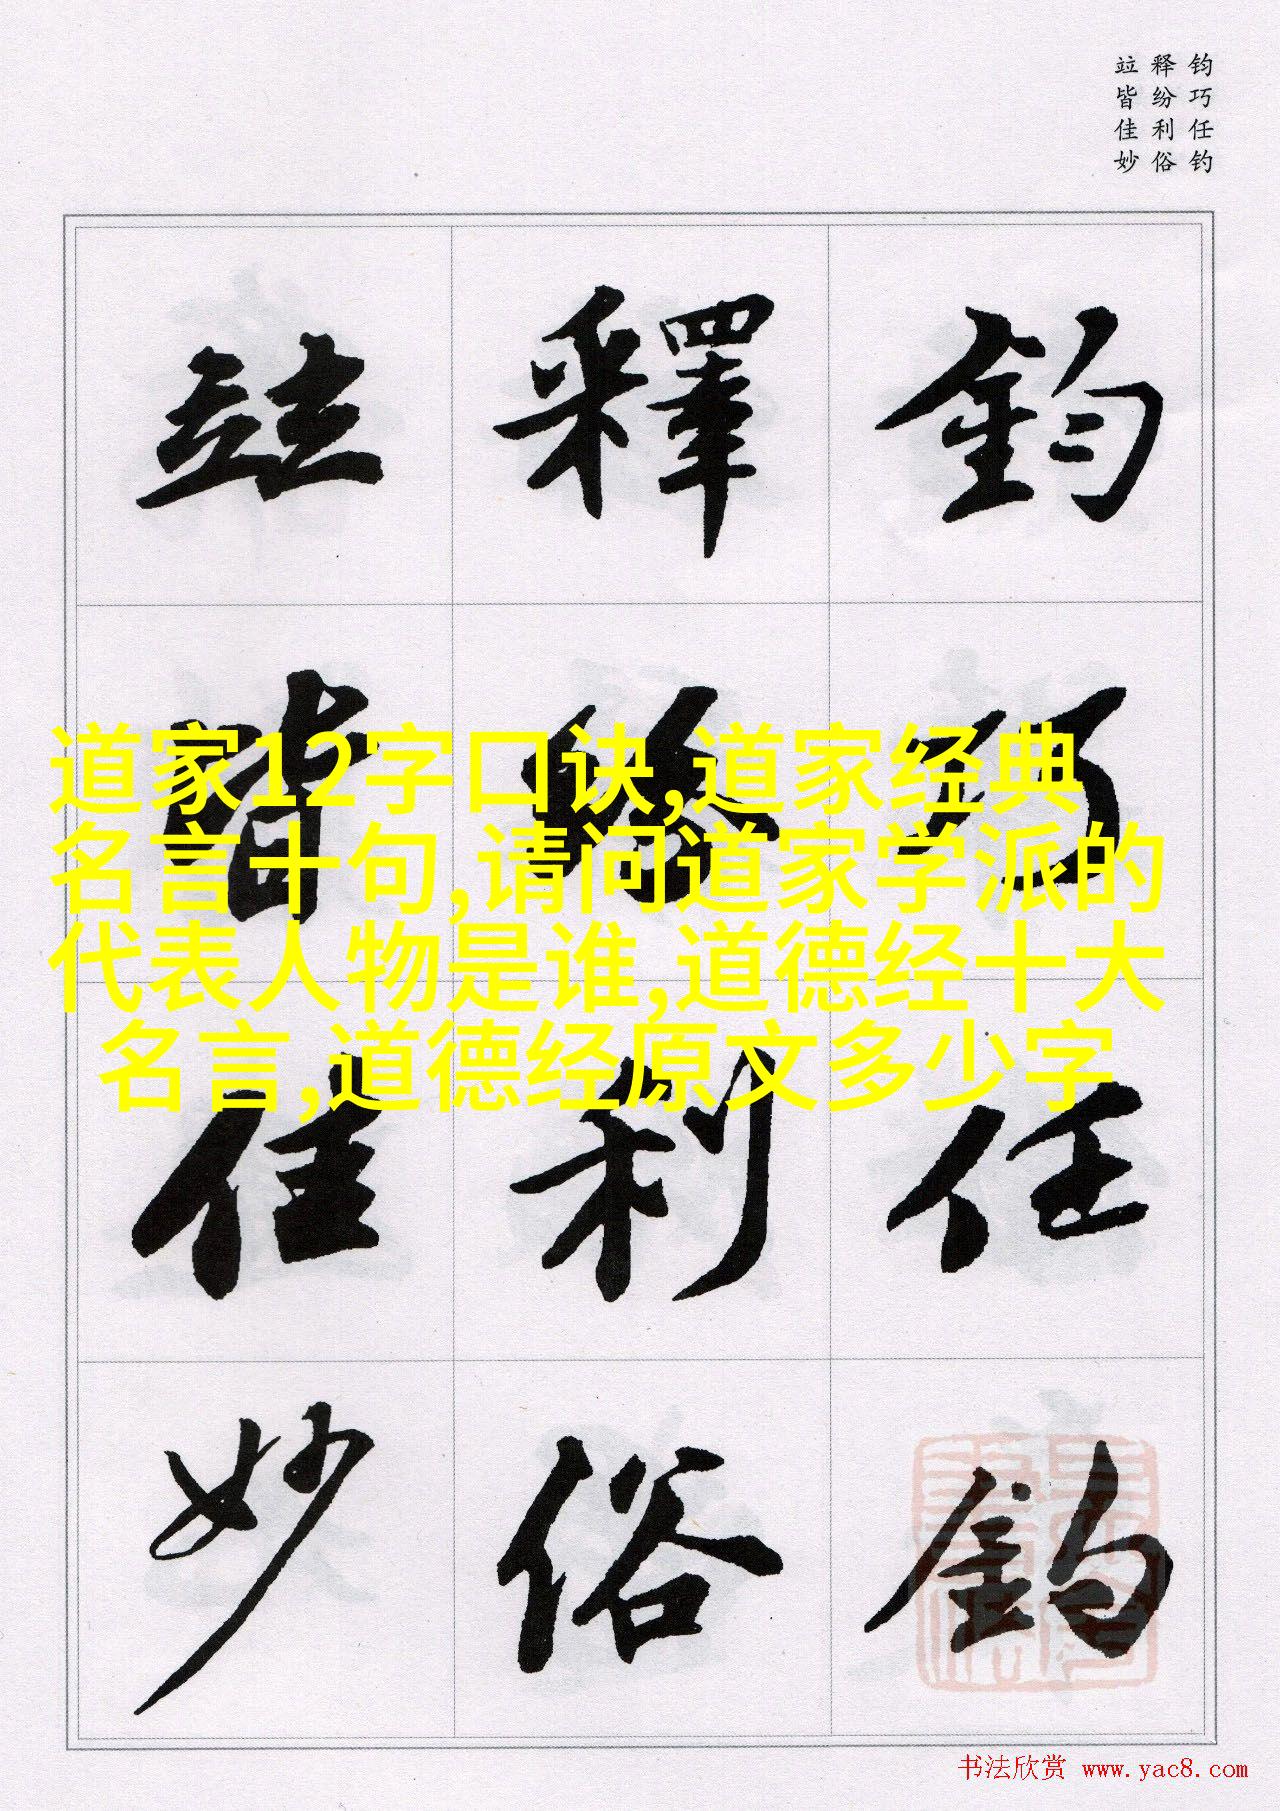 钧巧任钓
释纷利俗
竝皆佳妙
鈞巧任釣
釋紛利俗
竝皆佳妙
道家12字口诀,道家经典
名言十句,请问道家学派的
代表人物是谁,道德经十大
名言,道德经原文多少字
书法欣赏 www.yac8.com